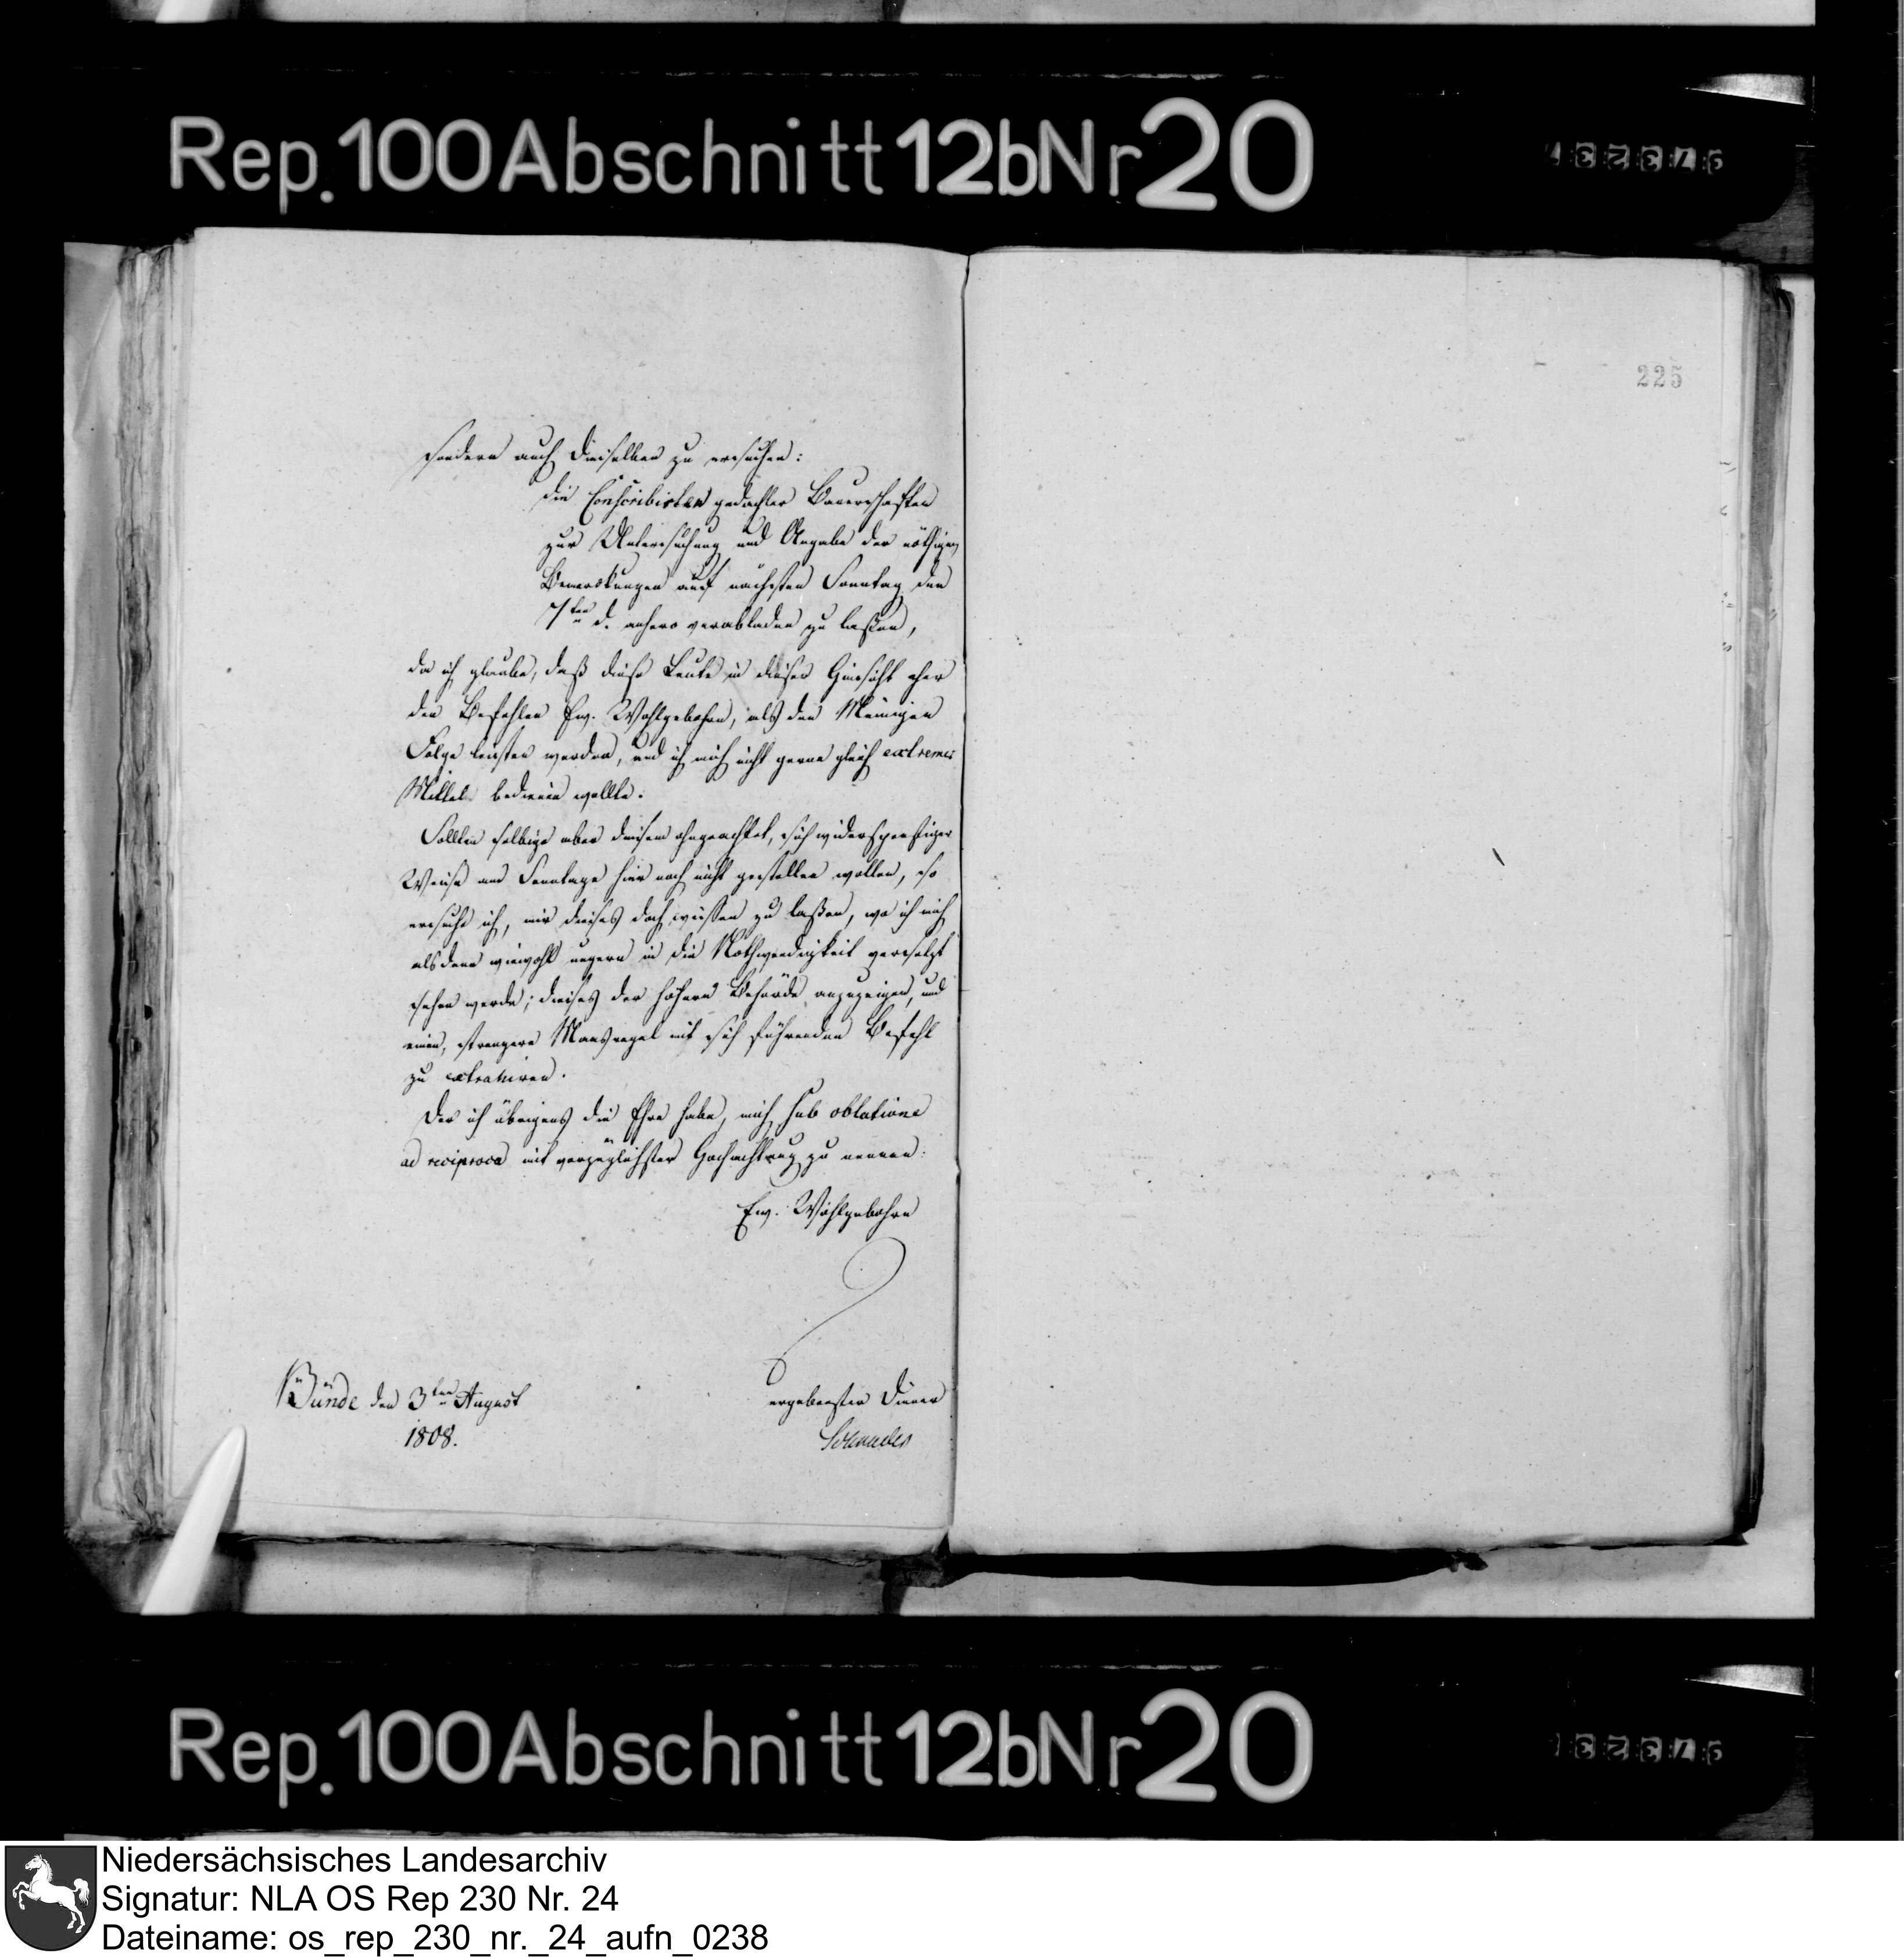 Rep. 100 Abschnitt 12b Nr 20
225
sondern auch Dieselben zu ersuchen:
die Conscribirten gedachter Bauerschaften
zur Untersuchung und Angabe der nöthigen
Bemerkungen auf nächsten Sonntag den
7ten d. anhero verabladen zu laßen,
da ich glaube, daß diese Leute in dieser Hinsicht eher
den Befehlen Ew. Wohlgebohrn, als den Meinigen
Folge leisten werden, und ich mich nicht gerne gleich extremer
Mittel bedienen wollte.
Sollten selbige aber diesem ohngeachtet, sich widerspenstiger
Weise am Sonntage hier noch nicht gestellen wollen, so
ersuche ich, mir dieses doch wissen zu laßen, wo ich mich
alsdenn wiewohl ungern in die Nothwendigkeit versetzt
sehen werde; dieses der höhern Behörde anzuzeigen, und
einen, strengere Maasregel mit sich führenden Befehl
zu extrahiren.
Der ich übrigens die Ehre habe, mich sub oblatione
ad reciproca mit vorzüglichster Hochachtung zu nennen:
Ew. Wohlgebohrn
Bünde den 3ten August
1808.
ergebenster Diener
Rep. 100 Abschnitt 12b Nr 20
Niedersächsisches Landesarchiv
Signatur: NLA OS Rep 230 Nr. 24
Dateiname: os_rep_230_nr._24_aufn_0238